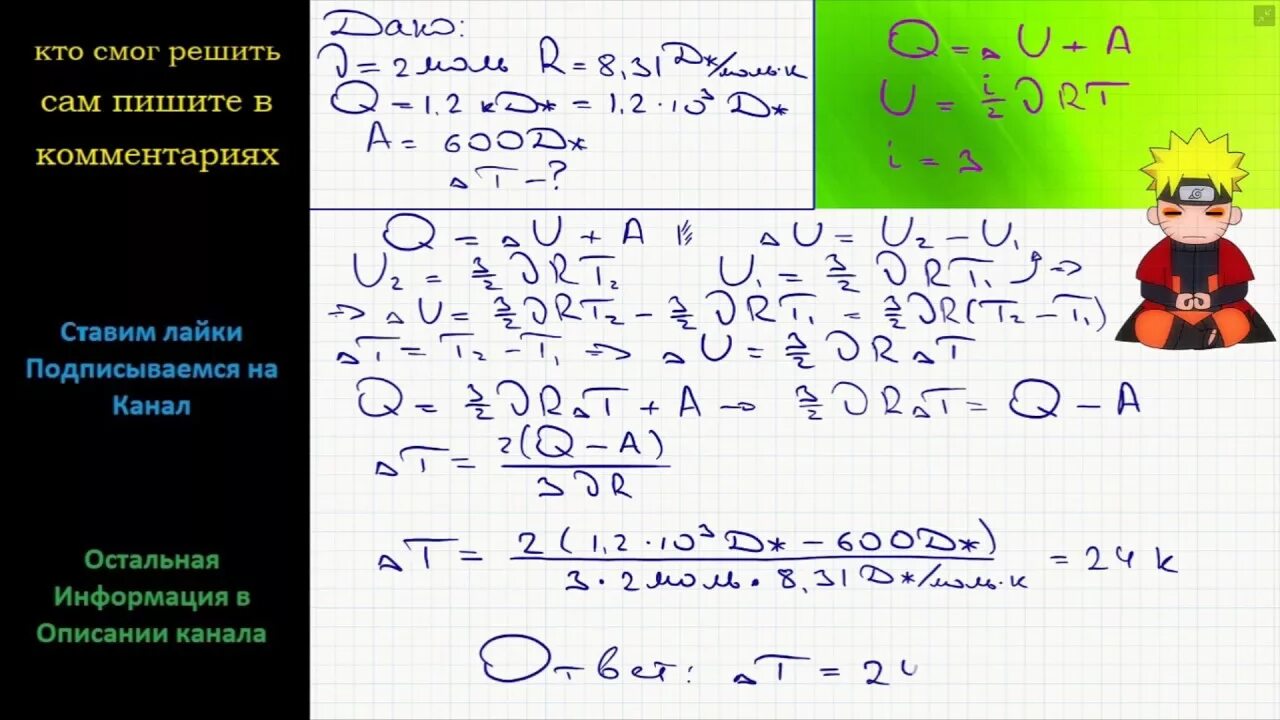 кто смог решить
сам пишите в
комментариях
Ставим лайки
Подписываемся на
Канал
Остальная
Информация в
Описании канала
Дано:
ν = 2 моль R = 8,31 Дж/моль·к
Q = 1,2 кДж = 1,2 · 10³ Дж
A = 600 Дж
ΔT - ?
Q = ΔU + A
U = i/2 νRT
i = 3
Q = ΔU + A ΔU = U₂ - U₁
U₂ = 3/2 νRT₂ U₁ = 3/2 νRT₁ =>
=> ΔU = 3/2 νRT₂ - 3/2 νRT₁ = 3/2 νR(T₂ - T₁)
ΔT = T₂ - T₁ => ΔU = 3/2 νRΔT
Q = 3/2 νRΔT + A → 3/2 νRΔT = Q - A
ΔT = 2(Q - A) / 3νR
ΔT = 2(1,2 · 10³ Дж - 600 Дж) / 3 · 2 моль · 8,31 Дж/моль·к = 24 к
Ответ: ΔT = 24